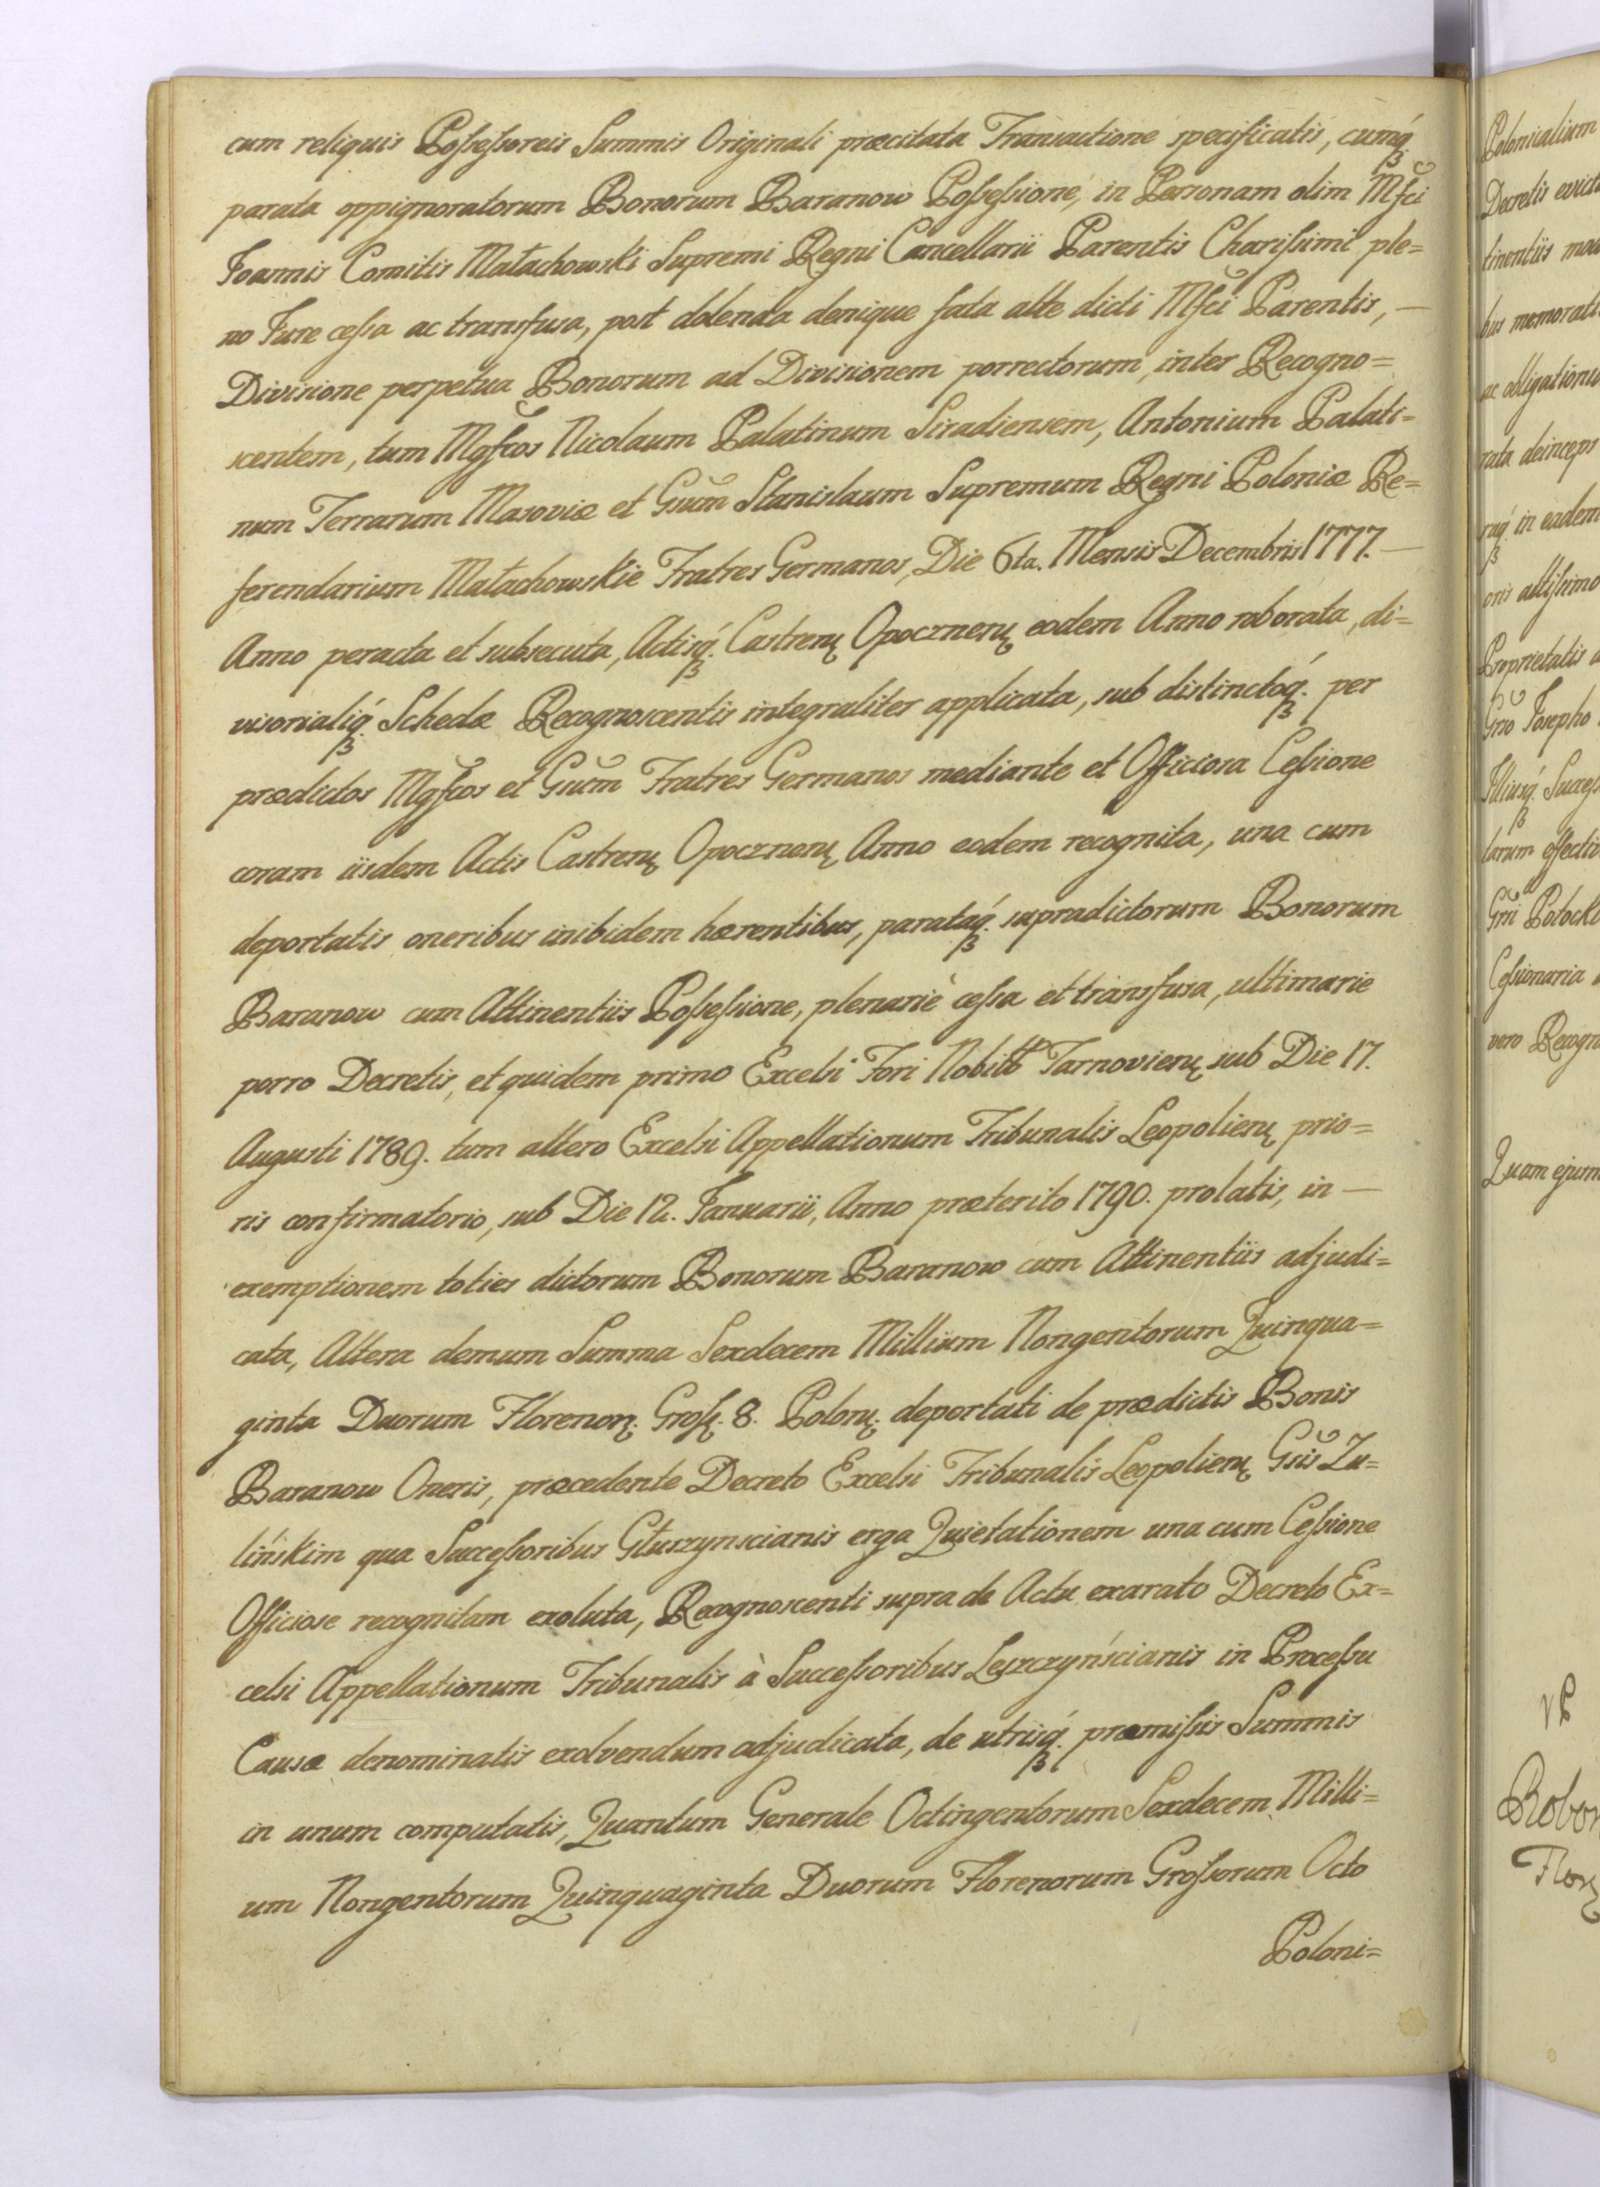 cum reliquis Possessoreis Summis Originali præcitata Transactione specificatis, cumq́ꝫ
parata oppignoratorum Bonorum Baranow Possessione, in Personam olim Mfci
Joannis Comitis Małachowski Supremi Regni Cancellarii Parentis Charissimi ple=
no Jure cessa ac transfusa, post dolenda denique fata alte dicti Mfci Parentis, —
Divisione perpetua Bonorum ad Divisionem porrectorum, inter Recogno=
scentem, tum Mgfcos Nicolaum Palatinum Siradiensem, Antonium Palati=
num Terrarum Masoviæ et Gsum Stanislaum Supremum Regni Poloniæ Re=
ferendarium Małachowskie Fratres Germanos, Die 6ta. Mensis Decembris 1777. —
Anno peracta et subsecuta, Actisq́ꝫ. Castrenʒ Opocznenʒ eodem Anno roborata, di=
visorialiq́ꝫ. Schedæ Recognoscentis integraliter applicata, sub distinctoq́ꝫ. per
prædictos Mgfcos et Gsum Fratres Germanos mediante et Officiosa Cessione
coram iisdem Actis Castrenʒ Opocznenʒ Anno eodem recognita, una cum
deportatis oneribus inibidem hærentibus, parataq́ꝫ. supradictorum Bonorum
Baranow cum Attinentiis Possessione, plenariè cessa et transfusa, ultimarie
porro Decretis, et quidem primo Excelsi Fori Nobilẗ Tarnovienʒ sub Die 17.
Augusti 1789. tum altero Excelsi Appellationum Tribunalis Leopolienʒ prio=
ris confirmatorio, sub Die 12. Januarii, Anno præterito 1790. prolatis, in —
exemptionem toties dictorum Bonorum Baranow cum Attinentiis adjudi=
cata, Altera demum Summa Sexdecem Millium Nongentorum Quinqua=
ginta Duorum Florenorʒ. Grosʒ. 8. Polonʒ. deportati de prædictis Bonis
Baranow Oneris, præcedente Decreto Excelsi Tribunalis Leopolienʒ Gsis Zu=
lińskim qua Successoribus Głuszynscianis erga Quietationem una cum Cessione
Officiose recognitam exoluta, Recognoscenti supra de Actu exarato Decreto Ex=
celsi Appellationum Tribunalis à Successoribus Leszczyńscianis in Processu
Causæ denominatis exolvendum adjudicata, de utrisq́ꝫ. præmissis Summis
in unum computatis, Quantum Generale Octingentorum Sexdecem Milli=
um Nongentorum Quinquaginta Duorum Florenorum Grossorum Octo
Poloni=
Polonicalium
Decretis
hus
ac
rata deinceps
in eadem
Proprietatis
Josepho
larum
Potocki
Cessionaria
vero Recogn
Quam